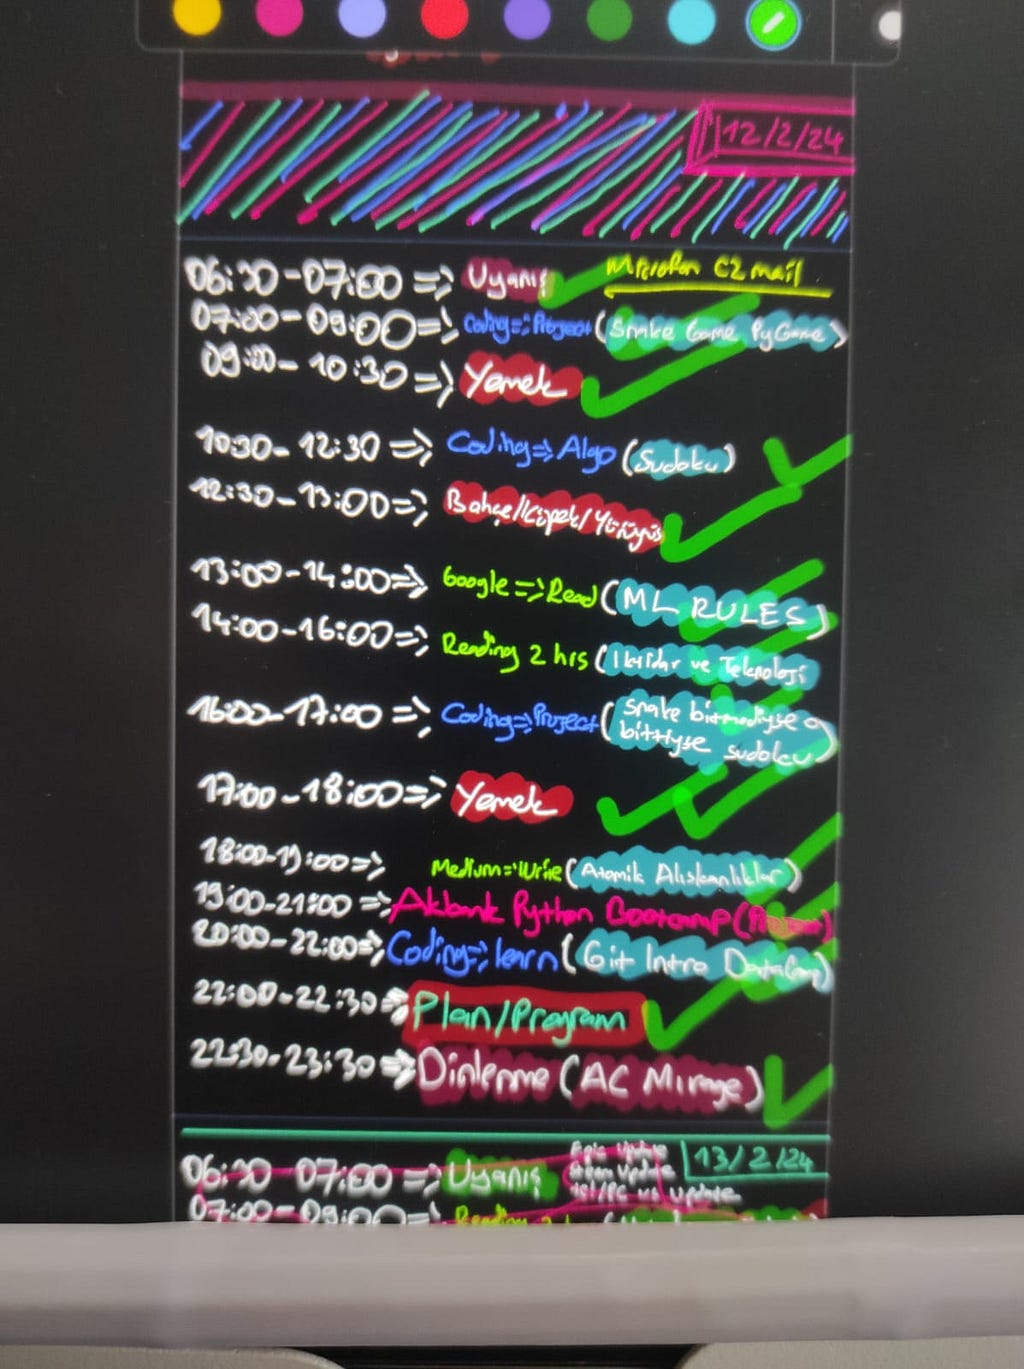 12/2/24
06:30-07:00 => Uyanış
Mikrofon CZ mail
07:00-09:00=> Coding=>Project (Snake Game PyGame)
09:00-10:30=> Yemek
10:30-12:30 => Coding=>Algo (Sudoku)
12:30-13:00=> Bahçe/Köpek/Yürüyüş
13:00-14:00=> Google=>Read (ML RULES)
14:00-16:00=> Reading 2 hrs (Iktidar ve Teknoloji
16:00-17:00 => Coding=>Project (Snake bitmediyse o
bittiyse sudoku)
17:00-18:00=> Yemek
18:00-19:00=> Medium=>Write (Atomik Alıskanlıklar)
19:00-21:00=> Akbank Python Bootcamp
20:00-22:00=> Coding=>learn (Git Intro DataCamp)
22:00-22:30=> Plan/Program
22:30-23:30=> Dinlenme (AC Mirage)
13/2/24
06:30 07:00 => Uyanış
Epic Update
Steam Update
Update
07:00-09:00=> Reading